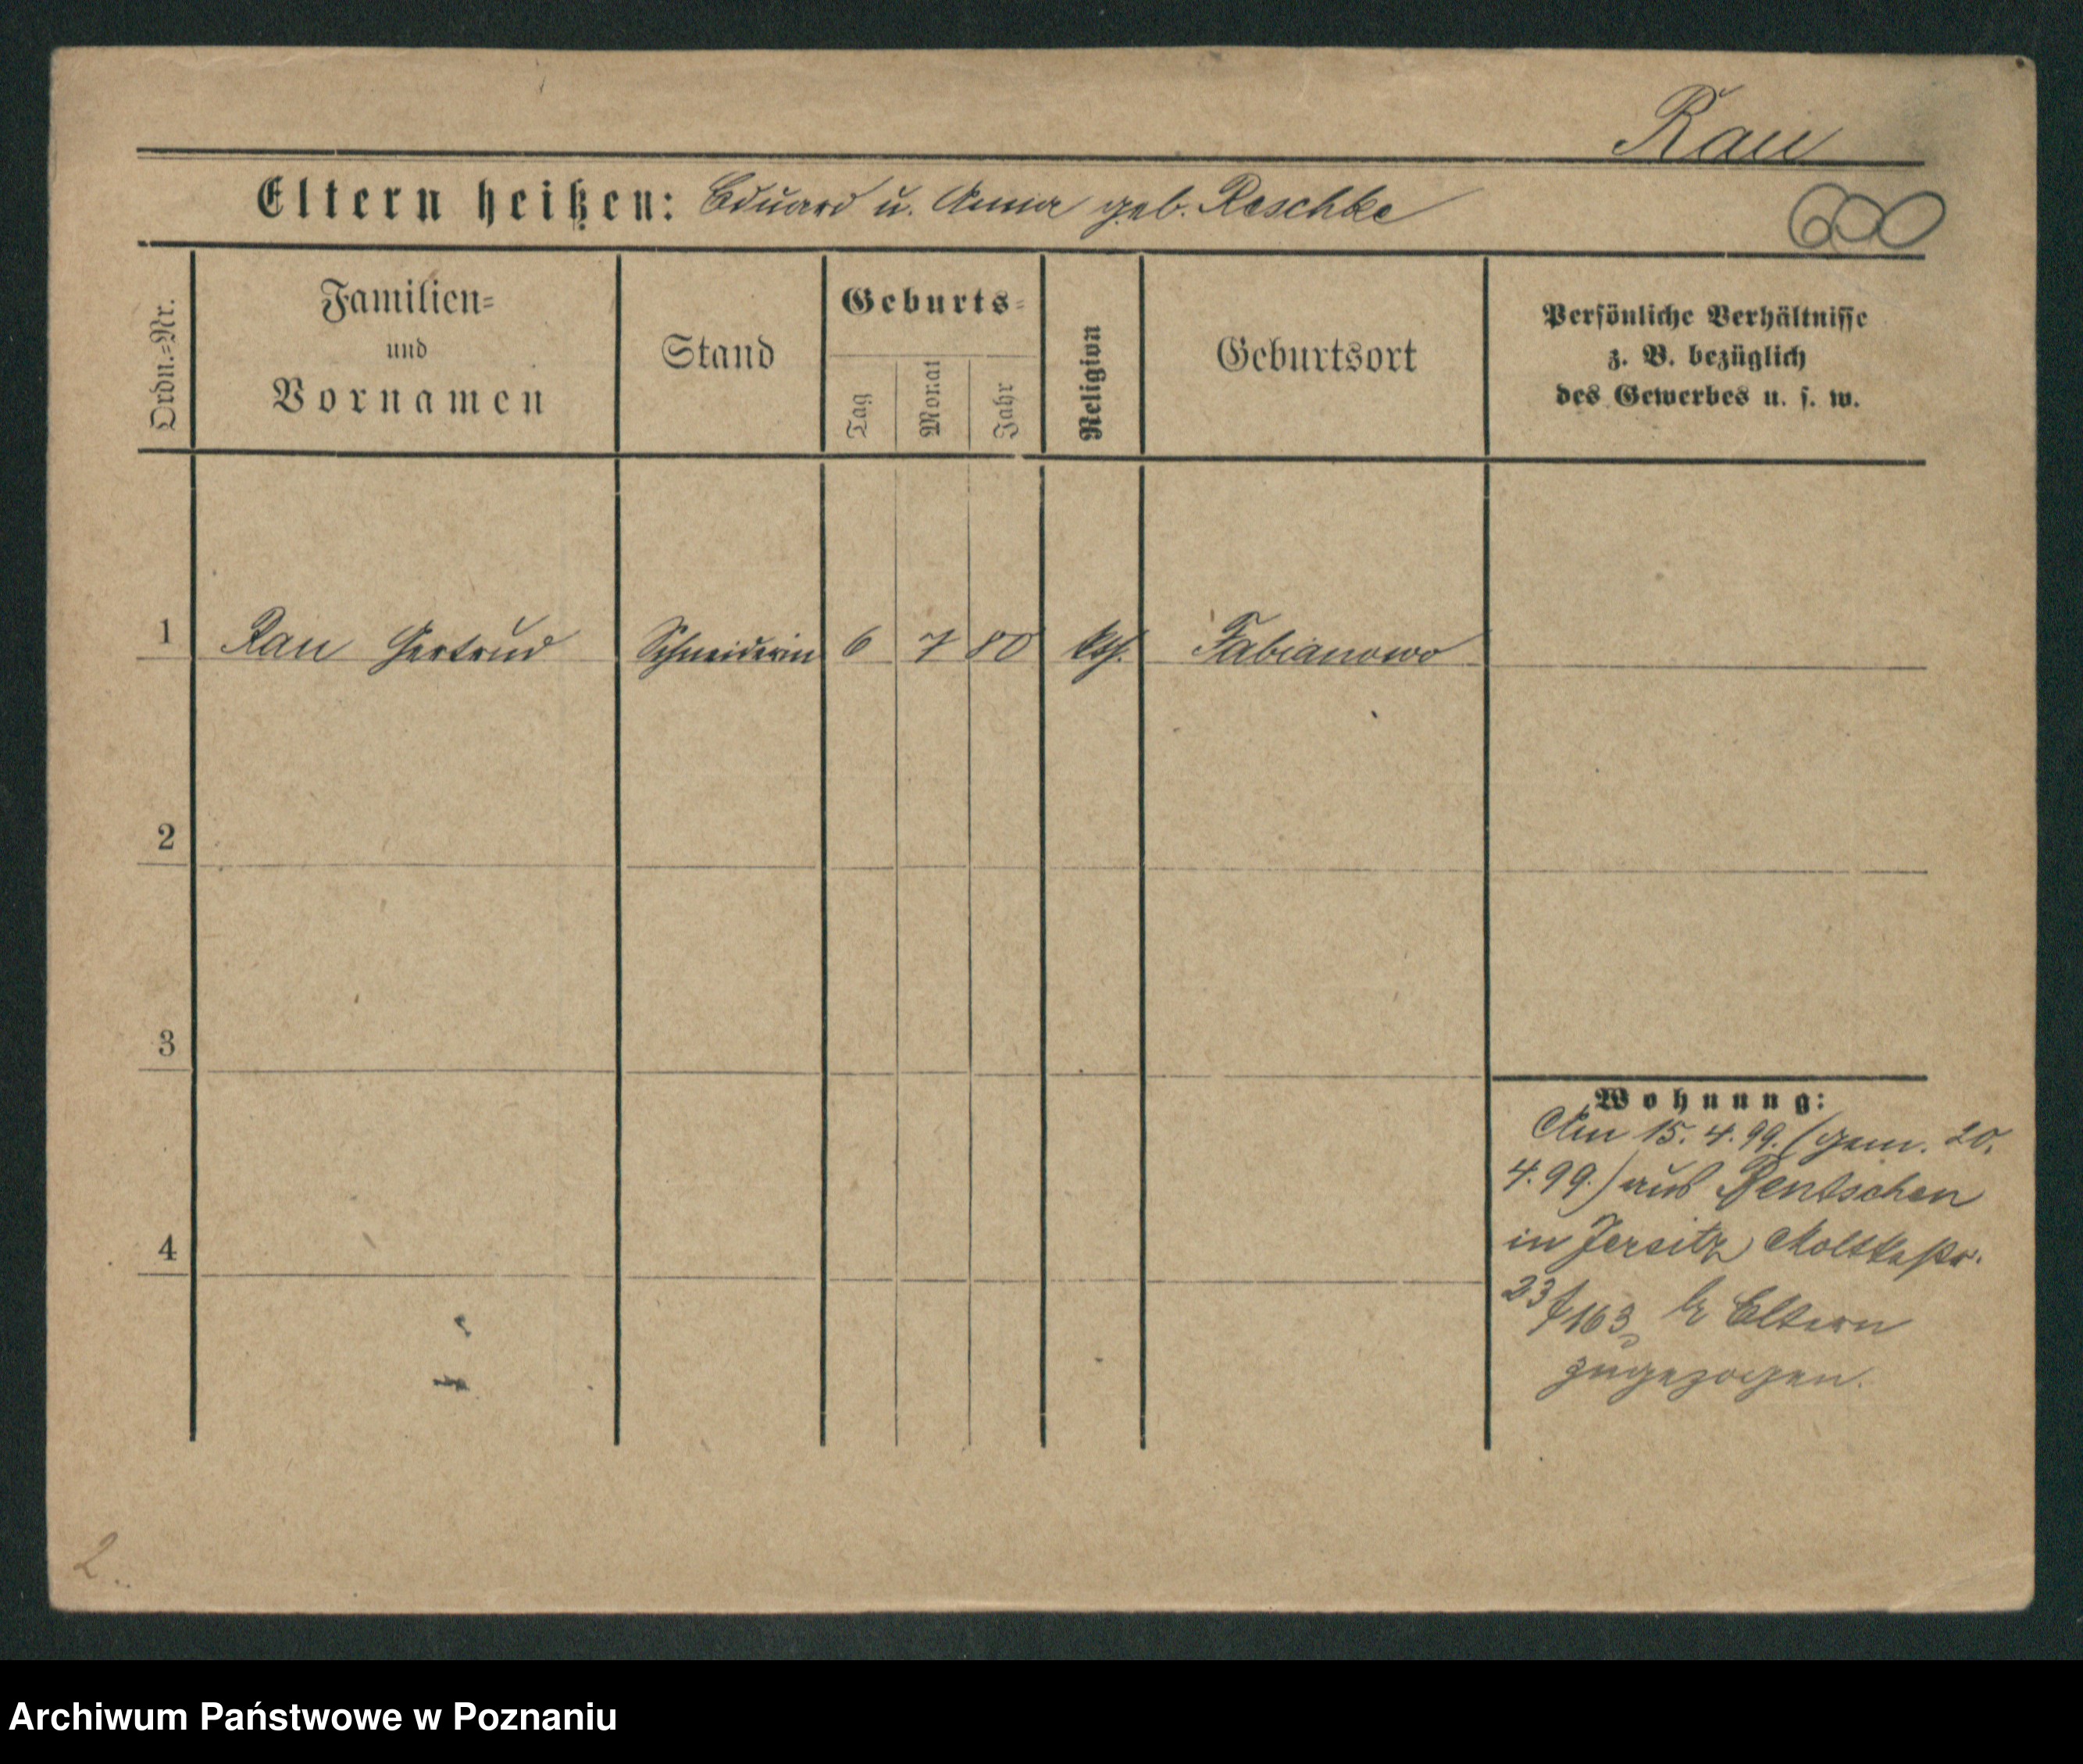 Rau
Eltern heißen: Eduard u. Anna geb. Reschke
600
Ordn.=Nr.
Familien=
und
Vornamen
Stand
Geburts=
Tag
Monat
Jahr
Religion
Geburtsort
Persönliche Verhältnisse
z. B. bezüglich
des Gewerbes u. s. w.
1 Rau Gertrud Schneiderin 6 7 80 kth. Fabianowo
2
3
4
Wohnung:
Am 15. 4. 99. (gem. 20.
4. 99.) aus Bentschen
in Jersitz Moltkestr.
23/163 Eltern
zugezogen.
2.
Archiwum Państwowe w Poznaniu